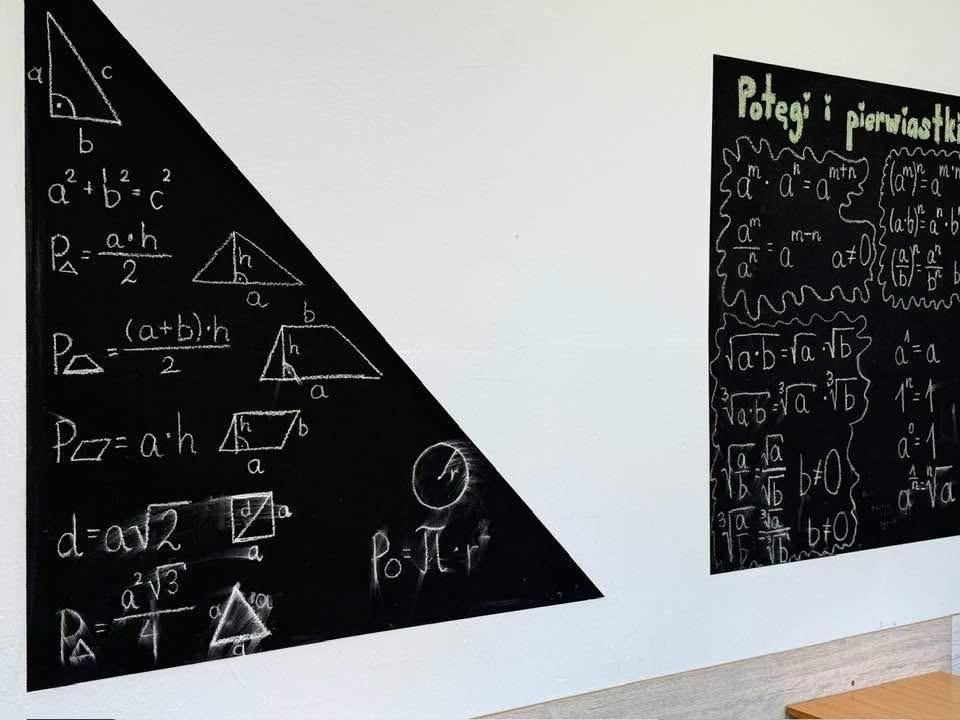 a c
b
a² + b² = c²
P△ = a·h/2
h
a
P⏢ = (a+b)·h/2
b
h
a
P▱ = a·h
h b
a
d = a√2
d a
a
P△ = a²√3/4
a a
a
r
P○ = π·r²
Potęgi i pierwiastki
aᵐ · aⁿ = aᵐ⁺ⁿ
aᵐ/aⁿ = aᵐ⁻ⁿ a≠0
(aᵐ)ⁿ = aᵐ·ⁿ
(a·b)ⁿ = aⁿ·bⁿ
(a/b)ⁿ = aⁿ/bⁿ b
√(a·b) = √a · √b
³√(a·b) = ³√a · ³√b
√(a/b) = √a/√b b≠0
³√(a/b) = ³√a/³√b b≠0
a¹ = a
1ⁿ = 1
a⁰ = 1
a^(1/n) = ⁿ√a